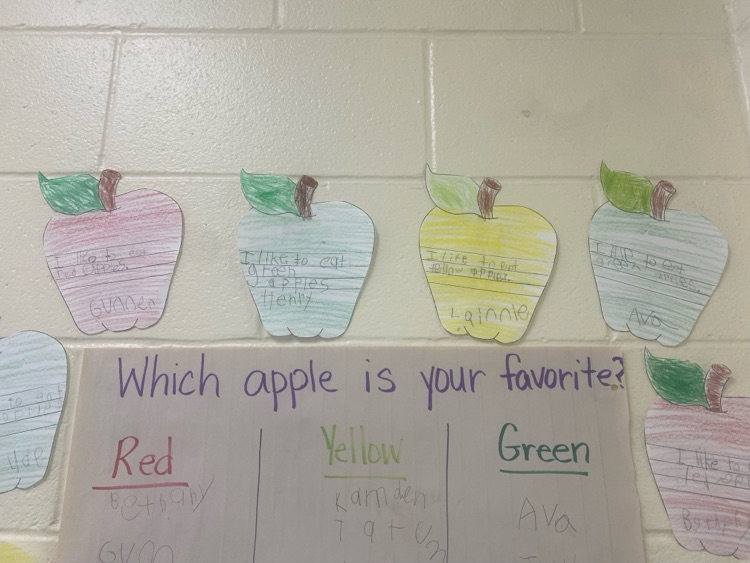 I like to eat
red apples.
Gunner
I like to eat
green
apples
Henry
I like to eat
yellow apples.
Lainnie
I like to eat
green
Ava
to eat
Which apple is your favorite?
Red
Bethany
Gunn
Yellow
Kamden
Tatum
Green
Ava
I like to
red